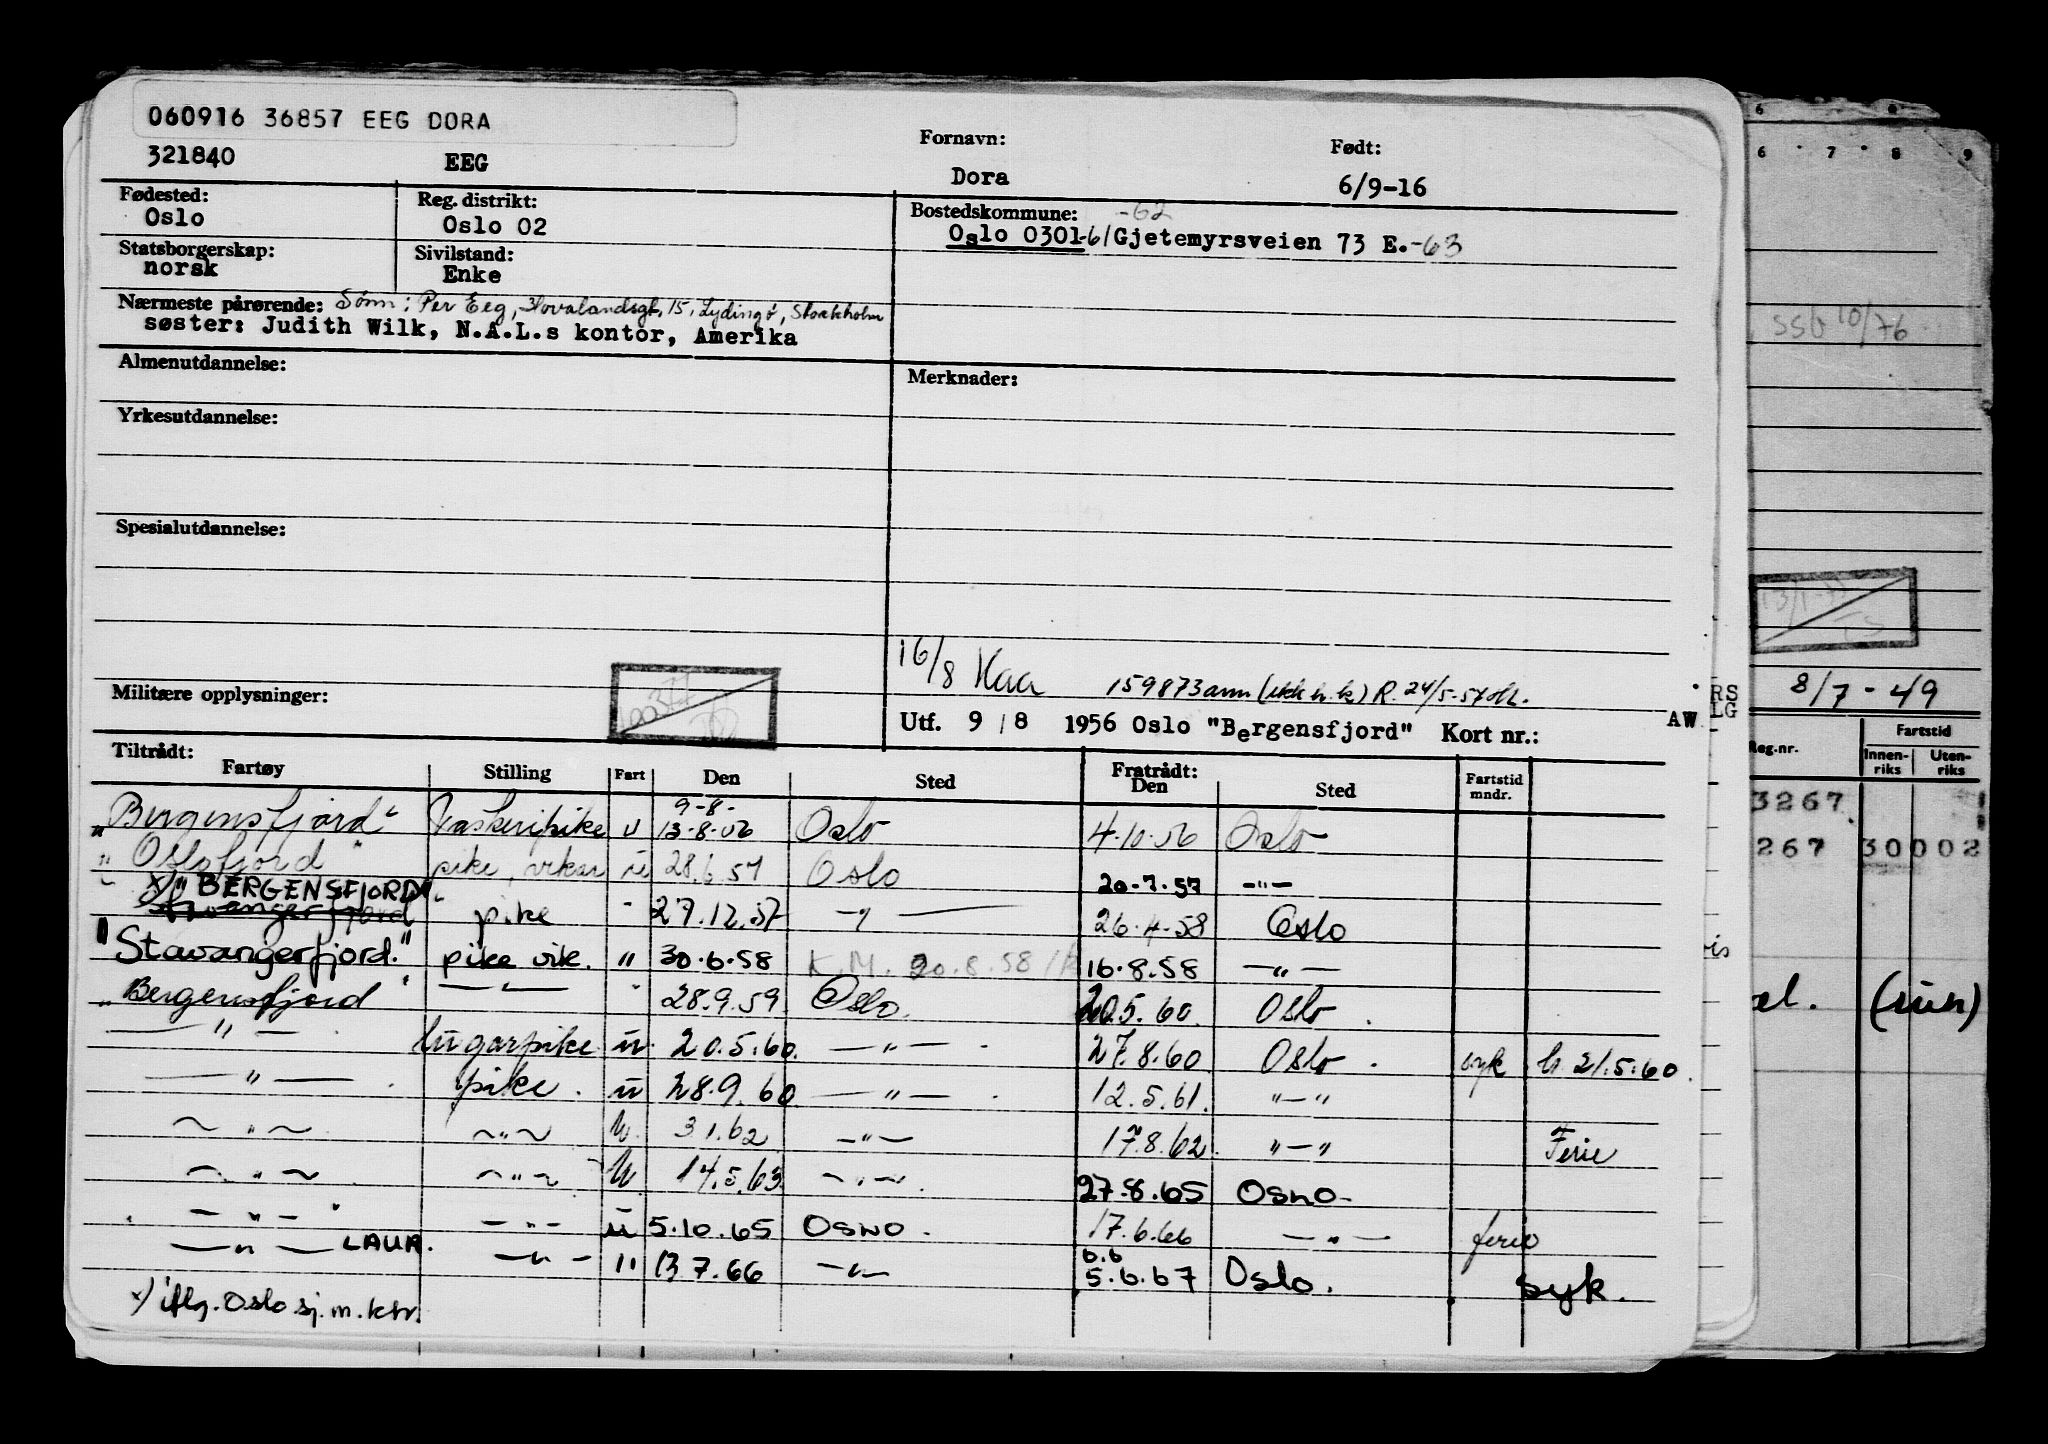 060916 36857 EEG DORA
321840 EEG Fornavn: Dora Født: 6/9-16
Fødested: Oslo Reg. distrikt: Oslo 02
Statsborgerskap: norsk Sivilstand: Enke
Bostedskommune: -62
Oslo 0301-61 Gjetemyrsveien 73 E. -63
Nærmeste pårørende: Sønn: Per Eeg, 15, Lydingø, Stockholm
søster: Judith Wilk, N.A.L.s kontor, Amerika
Almenutdannelse:
Merknader:
Yrkesutdannelse:
Spesialutdannelse:
Militære opplysninger:
16/8 Kaa 159873 ann (ikke h.k) R. 24/5-57
Utf. 9/8 1956 Oslo "Bergensfjord" Kort nr.:
Tiltrådt: Fartøy Stilling Fart Den Sted Fratrådt: Den Sted Fartstid mndr.
9-8-
"Bergensfjord" Vaskeripike u 13-8-56 Oslo 4-10-56 Oslo
"Oslofjord" pike, vikar u 28.6.57 Oslo 20-7-57 —"—
x) " BERGENSFJORD"
Stavangerfjord pike " 27.12.57 —"— 26-4-58 Oslo
"Stavangerfjord." pike vik. " 30.6.58 K.M. 20.8.58 16.8.58 —"—
"Bergensfjord" —"— " 28.9.59. Oslo. 20.5.60. Oslo.
—"— lugarpike u. 20.5.60. —"— 27.8.60 Oslo. syk h. 21.5.60.
—"— pike. u 28.9.60 —"— 12.5.61. "—"
—"— —"— U. 3 1.62 —"— 17.8.62. "—" Ferie
—"— —"— U 14.5.63. —"— 27.8.65 OSLO
—"— —"— u 5.10.65 OSLO. 17.6.66 —"— ferie
—"— LAUR. —"— " 13 7.66 —"— 6.6 5.6.67 Oslo. syk.
x) iflg. Oslo sj. m. ktr.
6 8
6 7 8 9
SSB 10/76
RS
LG
AW
8/7-49
Reg.nr. Fartstid
Innenriks Utenriks
3267
267 30002
(sign)